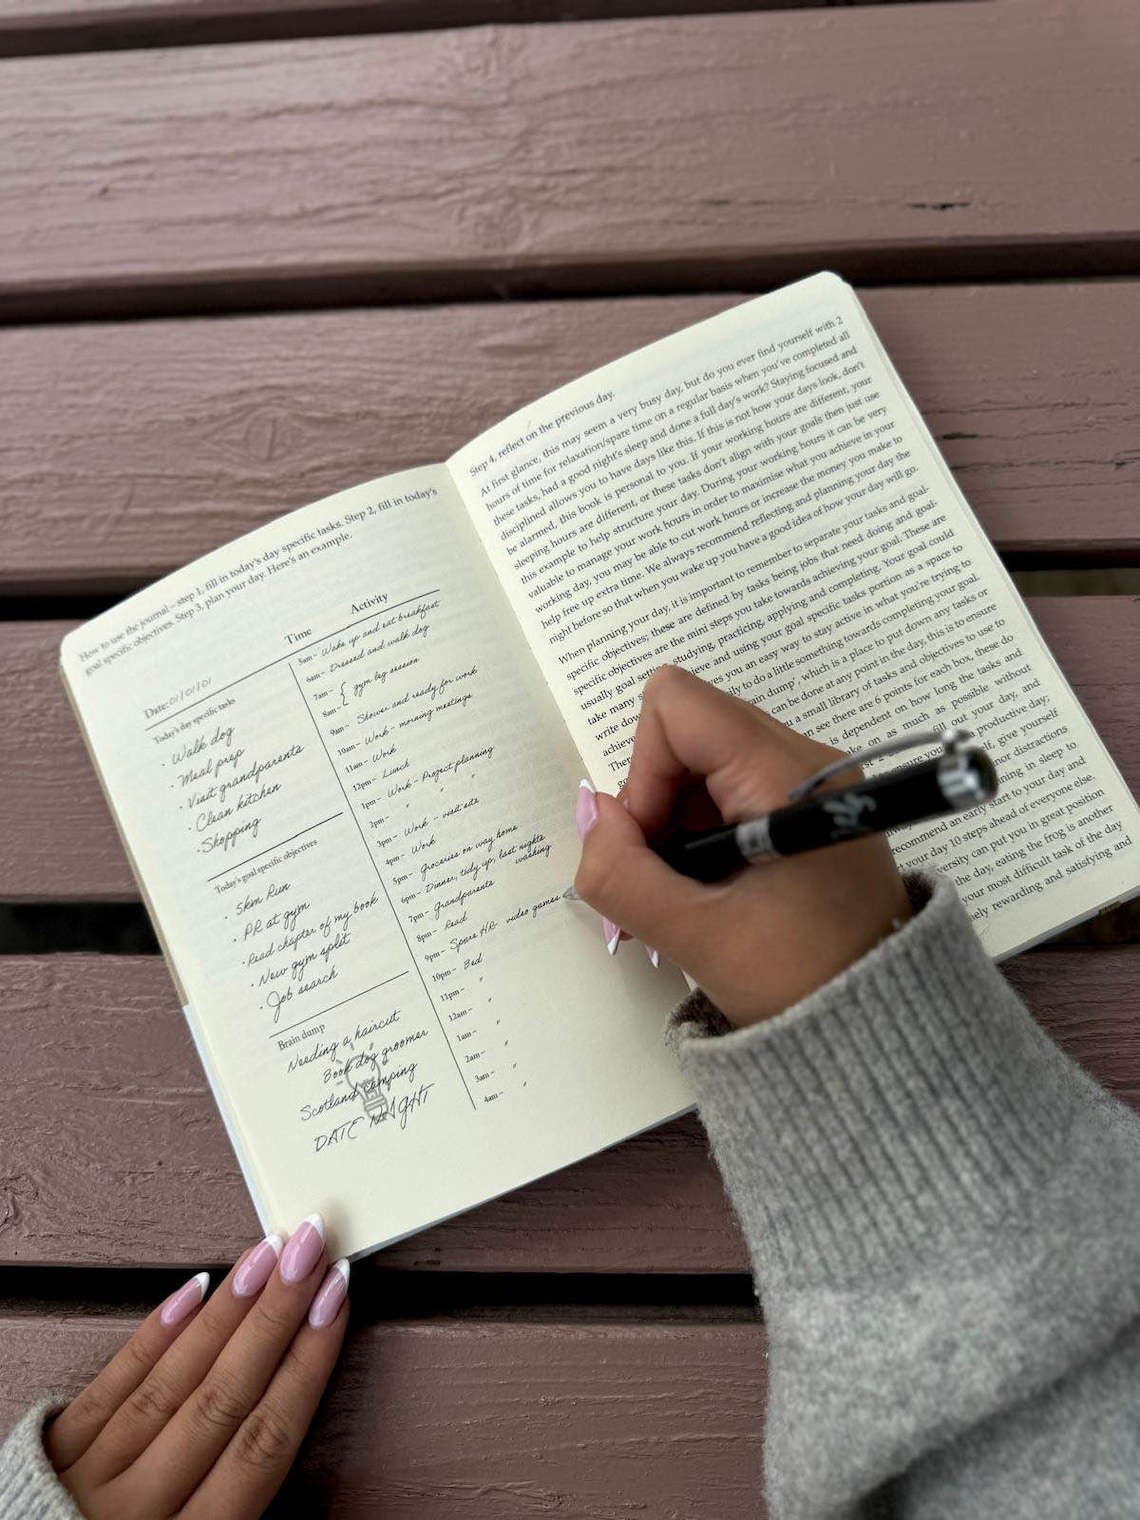 How to use the journal – step 1, fill in today's day specific tasks. Step 2, fill in today's
goal specific objectives. Step 3, plan your day. Here's an example.
Date: 01/01/01
Today's day specific tasks
· Walk dog
· Meal prep
· Visit grandparents
· Clean kitchen
· Shopping
Today's goal specific objectives
· 5km Run
· PR at gym
· Read chapter of my book
· New gym split
· Job search
Brain dump
Needing a haircut
Book dog groomer
Scotland camping
DATE NIGHT
Time Activity
5am – Wake up and eat breakfast
6am – Dressed and walk dog
7am – { gym leg session
8am –
9am – Shower and ready for work
10am – Work - morning meetings
11am – Work
12pm – Lunch
1pm – Work - Project planning
2pm – " " "
3pm – Work - visit site
4pm – Work
5pm – Groceries on way home
6pm – Dinner, tidy up, last nights
washing
7pm – Grandparents
8pm – Read
9pm – Spare HR - video games
10pm – Bed
11pm – "
12am – "
1am – "
2am – "
3am – "
4am – "
Step 4, reflect on the previous day.
At first glance, this may seem a very busy day, but do you ever find yourself with 2
hours of time for relaxation/spare time on a regular basis when you've completed all
these tasks, had a good night's sleep and done a full day's work? Staying focused and
disciplined allows you to have days like this. If this is not how your days look, don't
be alarmed, this book is personal to you. If your working hours are different, your
sleeping hours are different, or these tasks don't align with your goals then just use
this example to help structure your day. During your working hours it can be very
valuable to manage your work hours in order to maximise what you achieve in your
working day, you may be able to cut work hours or increase the money you make to
help free up extra time. We always recommend reflecting and planning your day the
night before so that when you wake up you have a good idea of how your day will go.
When planning your day, it is important to remember to separate your tasks and goal-
specific objectives; these are defined by tasks being jobs that need doing and goal-
specific objectives are the mini steps you take towards achieving your goal. These are
usually goal setting, studying, practicing, applying and completing. Your goal could
take many achieve and using your goal specific tasks portion as a space to
write down gives you an easy way to stay active in what you're trying to
achieve to do a little something towards completing your goal.
Ther dump', which is a place to put down any tasks or
can be done at any point in the day, this is to ensure
you a small library of tasks and objectives to use to
see there are 6 points for each box, these do
is dependent on how long the tasks and
take on as much as possible without
ensure you fill out your day, and
a productive day;
give yourself
minor distractions
in sleep to
recommend an early start to your day and
your day 10 steps ahead of everyone else.
can put you in great position
the day, eating the frog is another
your most difficult task of the day
rewarding and satisfying and